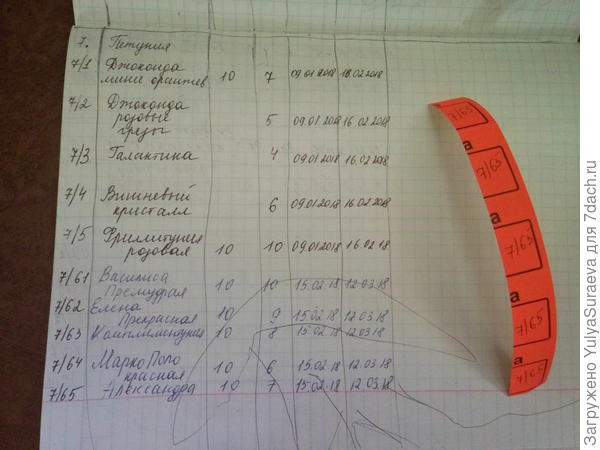 7. Петуния
7/1 Джоконда
мини оранжев 10 7 09.01.2018 18.02.2018
7/2 Джоконда
розовые
грезы 5 09.01.2018 16.02.2018
7/3 Галактика 4 09.01.2018 16.02.2018
7/4 Вишневый
кристалл 6 09.01.2018 16.02.2018
7/5 Фриллитуния
розовая 10 10 09.01.2018 16.02.18
7/61 Василиса
Премудрая 10 10 15.02.18 12.03.18
7/62 Елена
Прекрасная 10 9 15.02.18 12.03.18
7/63 Комплиментуния 10 8 15.02.18 12.03.18
7/64 Марко Поло
красная 10 6 15.02.18 12.03.18
7/65 Александра 10 7 15.02.18 12.03.18
7/65
а
7/65
а
7/65
а
7/65
а
7/65
Загружено YulyaSuraeva для 7dach.ru